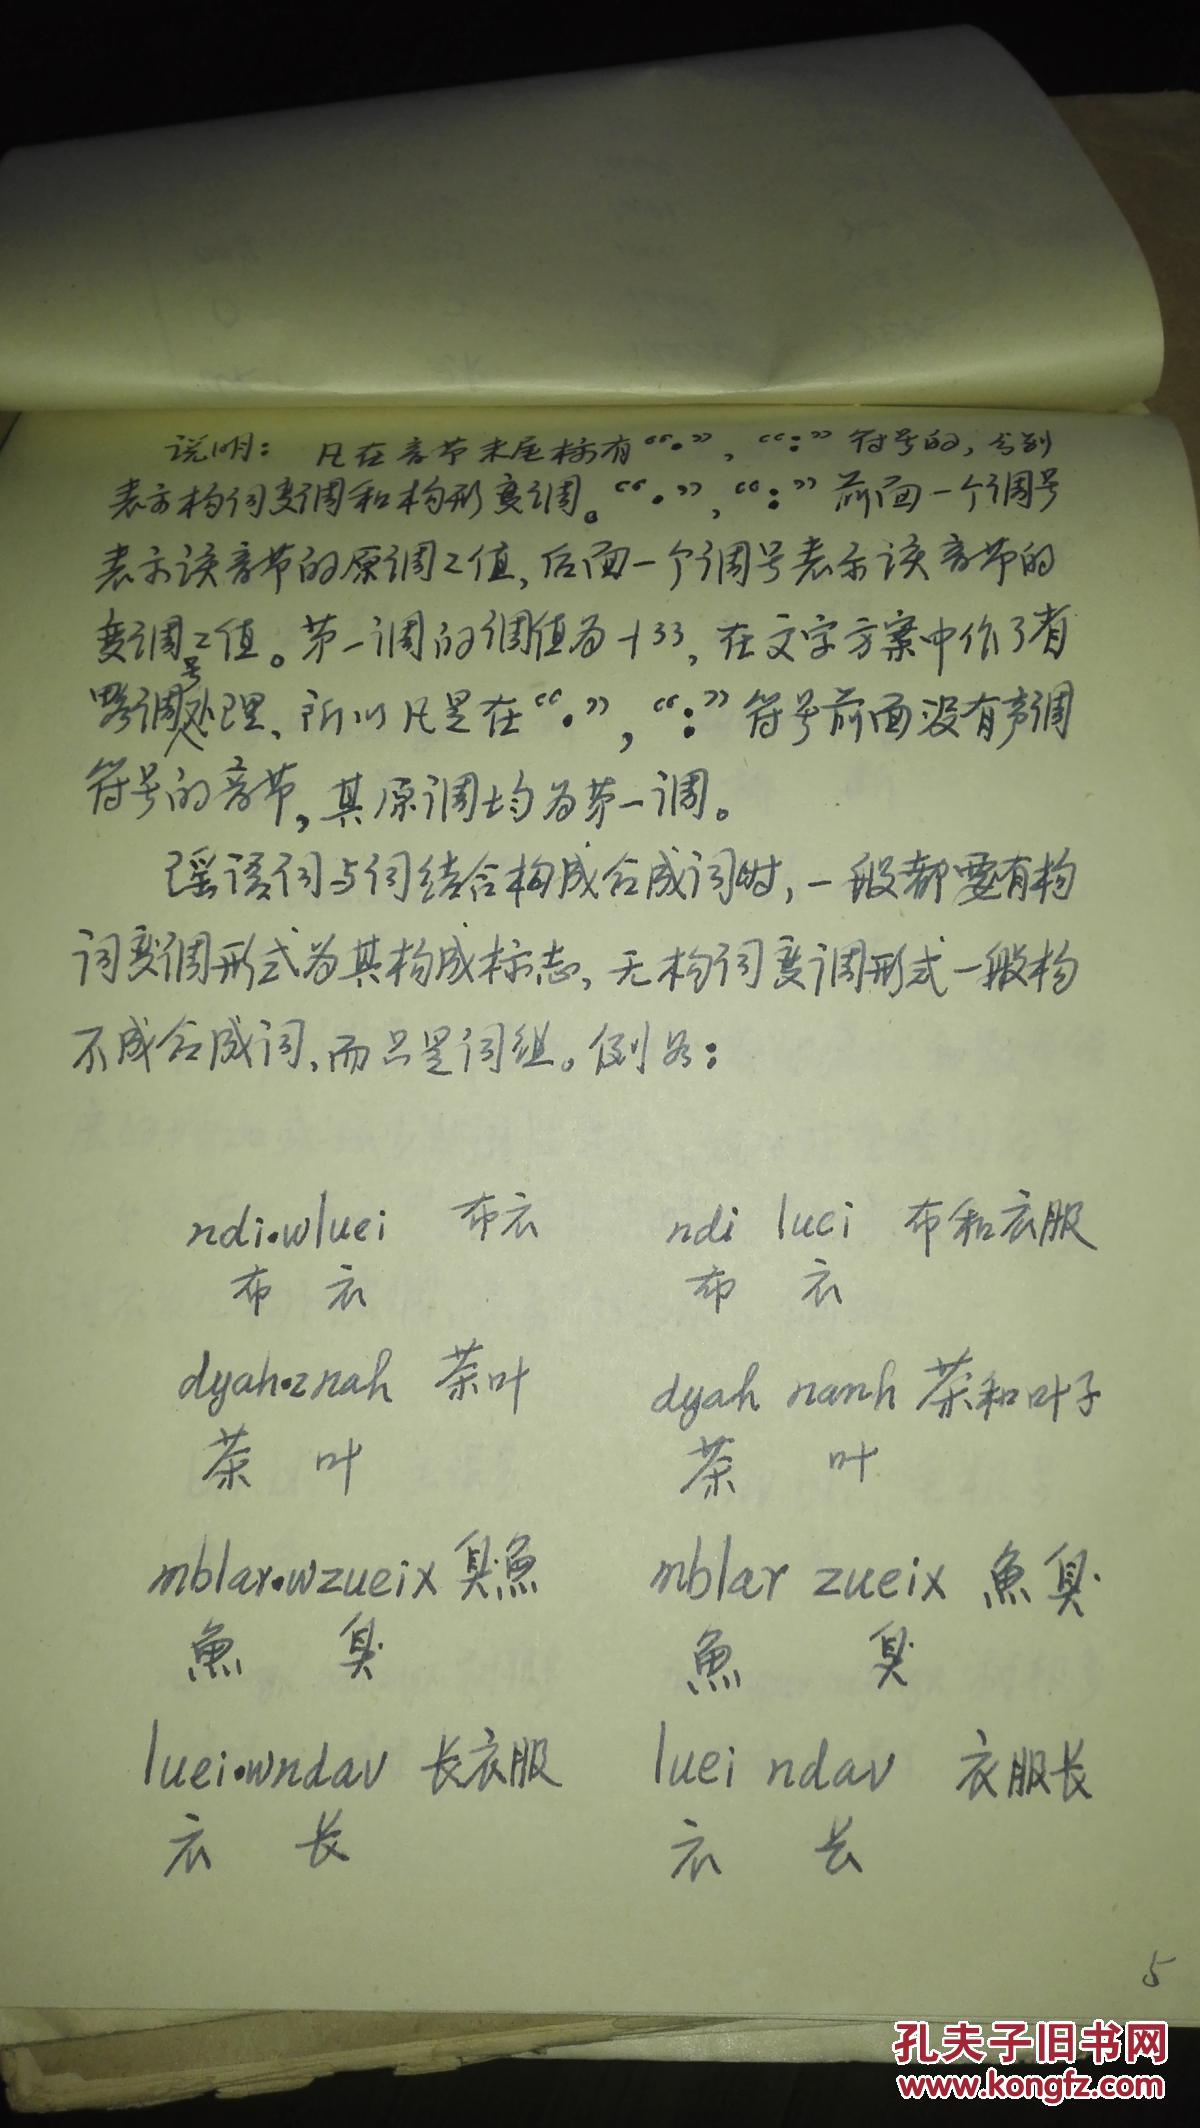 说明：凡在音节末尾标有“·”，“：”符号的，分别
表示构词变调和构形变调。“·”，“：”前面一个调号
表示该音节的原调之值，后面一个调号表示该音节的
变调之值。第一调的调值为˧33，在文字方案中作了省
略调号处理、所以凡是在“·”，“：”符号前面没有声调
符号的音节，其原调均为第一调。
瑶语词与词结合构成合成词时，一般都要有构
词变调形式为其构成标志，无构词变调形式一般构
不成合成词、而只是词组。例如：
ndi·wluei 布衣 ndi luei 布和衣服
布 衣 布 衣
dyah·znah 茶叶 dyah nanh 茶和叶子
茶 叶 茶 叶
mblar·wzueix 臭魚 mblar zueix 魚臭
魚 臭 魚 臭
luei·wndav 长衣服 luei ndav 衣服长
衣 长 衣 长
5
孔夫子旧书网
www.kongfz.com